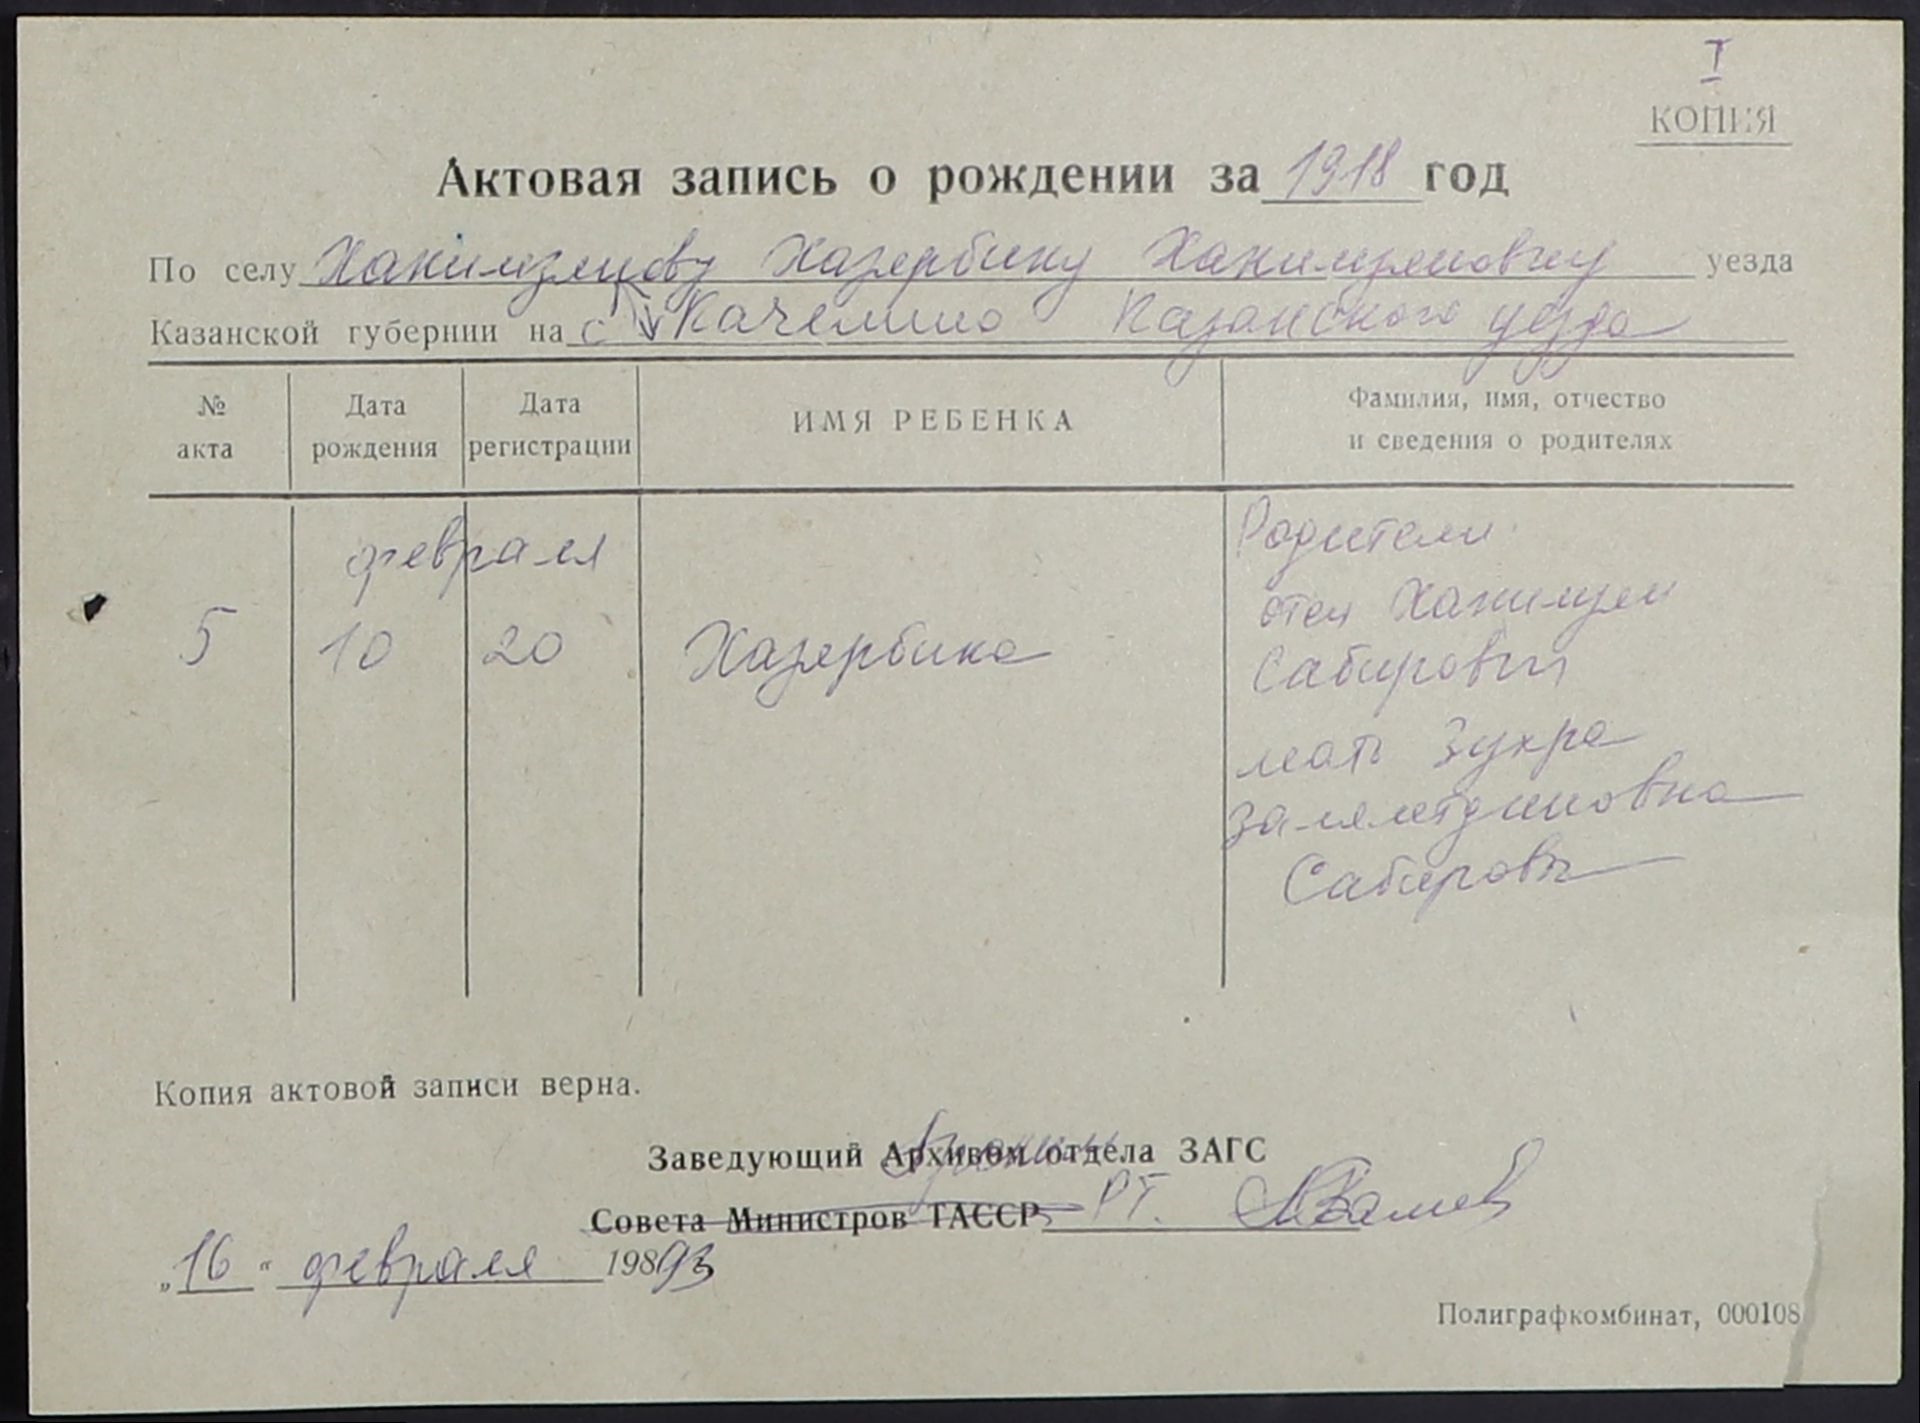 I
КОПИЯ
Актовая запись о рождении за 1918 год
По селу Хакимзянову Хазярбику Хакимзяновичу уезда
Казанской губернии на с Качелино Казанского уезда
№ акта
Дата рождения
Дата регистрации
ИМЯ РЕБЕНКА
Фамилия, имя, отчество
и сведения о родителях
февраля
5 10 20 Хазярбика
Родители
отец Хакимзян
Сабирович
мать Зухра
Залялетдиновна
Сабировы
Копия актовой записи верна.
Заведующий Архивом отдела ЗАГС
Совета Министров ТАССР РТ.
„16“ февраля 19893
Полиграфкомбинат, 000108